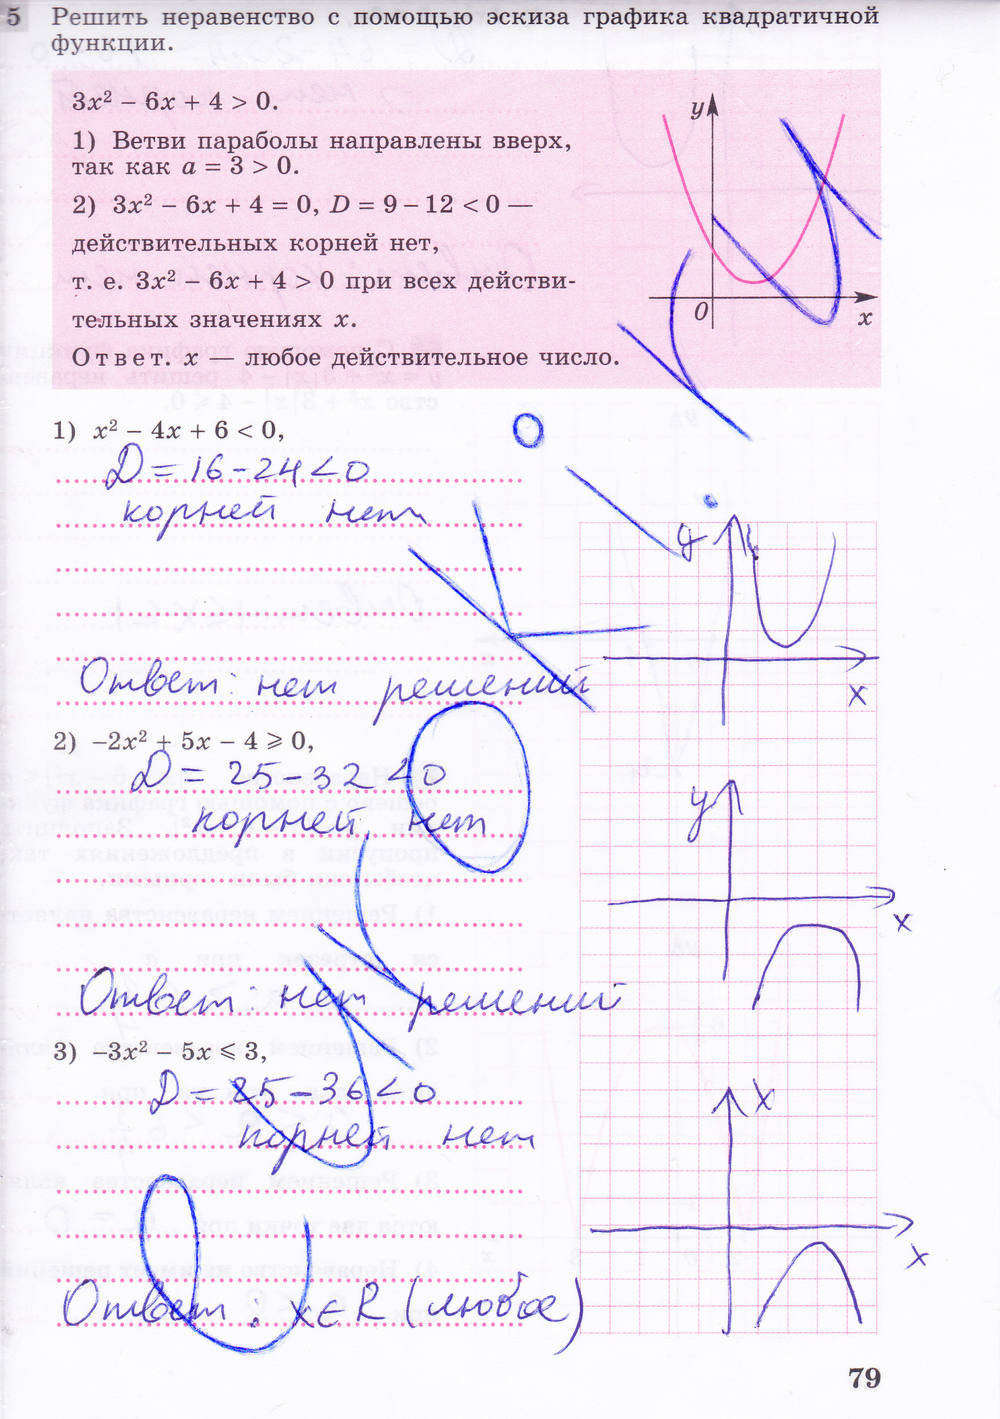 5 Решить неравенство с помощью эскиза графика квадратичной
функции.
3x² – 6x + 4 > 0.
1) Ветви параболы направлены вверх,
так как a = 3 > 0.
2) 3x² – 6x + 4 = 0, D = 9 – 12 < 0 —
действительных корней нет,
т. е. 3x² – 6x + 4 > 0 при всех действи-
тельных значениях x.
Ответ. x — любое действительное число.
y
0
x
1) x² – 4x + 6 < 0,
D = 16 – 24 < 0
корней нет
Ответ: нет решений
y
x
2) –2x² + 5x – 4 ⩾ 0,
D = 25 – 32 < 0
корней нет
Ответ: нет решений
y
x
3) –3x² – 5x ⩽ 3,
D = 25 – 36 < 0
корней нет
Ответ: x ∈ R (любое)
x
x
79